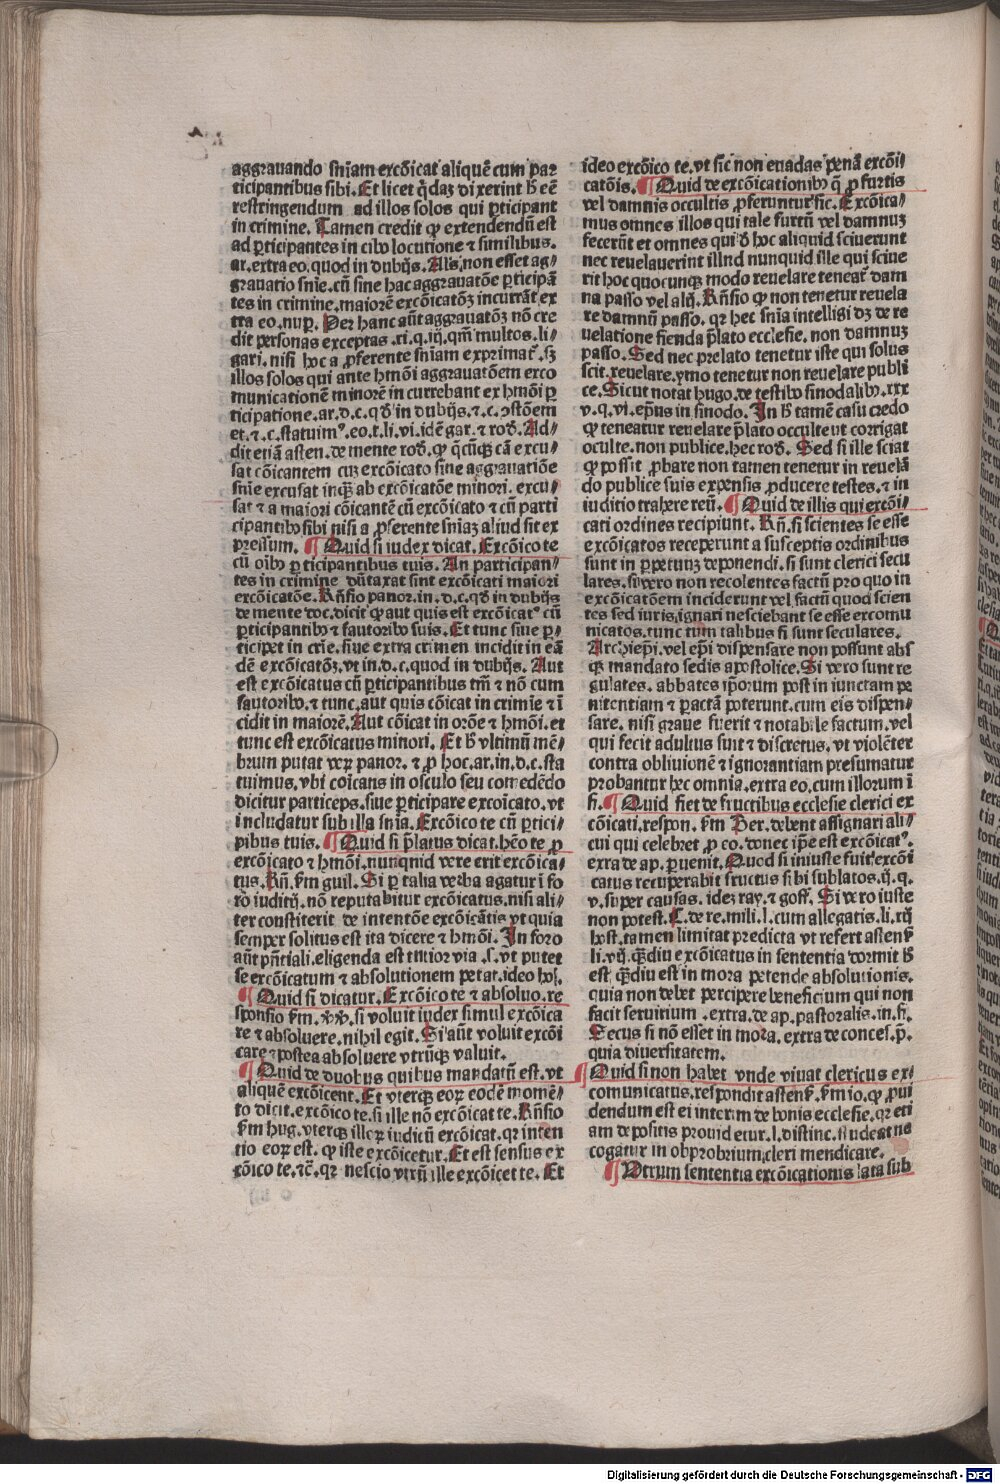 aggrauando sniam excōicat aliquē cum par
ticipantibus sibi. Et licet q̄daȝ dixerint hˀ eē
restringendum ad illos solos qui ꝑticipant
in crimine. Tamen credit ꝙ extendendū est
ad ꝑticipantes in cibo locutione ⁊ similibus.
ar. extra eo. quod in dubijs. Alīs. non esset ag⸗
grauatio snīe. cū sine hac aggrauatōe ꝑticipā
tes in crimine. maiorē excōicatōȝ incurrāt ex
tra eo. nuꝑ. Per hanc aūt aggrauatōȝ nō cre
dit personas exceptas .xi. q. iij. qm̄ multos. li⸗
gari. nisi hoc a ꝓferente sniam exprimatˀ. sȝ
illos solos qui ante hmōi aggrauatōem exco
municationē minorē incurrebant ex hmōi ꝑ
ticipatione. ar. d. c. qđ in dubijs. ⁊ c. ꝯstōem
et. ⁊ c. statuimˀ. eo. t. li. vi. idē gar. ⁊ rođ. Ad⸗
dit etiā asten. de mente rođ. ꝙ q̄cūqꝫ cā excu⸗
sat cōicantem cuȝ excōicato sine aggrauatiōe
snīe excusat inqꝫ ab excōicatōe minori. excu⸗
sat ⁊ a maiori cōicantē cū excōicato ⁊ cū parti
cipantibꝰ sibi nisi a ꝓferente sniaȝ aliud sit ex
pressum. ¶ Quid si iudex dicat. Excōico te
cū oībꝰ ꝑticipantibus tuis. An participan⸗
tes in crimine dūtaxat sint excōicati maiori
excōicatōe. Rn̄sio panor. in. d. c. qđ in dubijs
de mente doc. dicit ꝙ aut quis est excōicatˀ cū
ꝑticipantibꝰ ⁊ fautoribꝰ suis. Et tunc siue ꝑ⸗
ticipet in crīe. siue extra crimen incidit in eā
dē excōicatōȝ. vt in. d. c. quod in dubijs. Aut
est excōicatus cū ꝑticipantibus tm̄ ⁊ nō cum
fautoribꝰ. ⁊ tunc. aut quis cōicat in crimīe ⁊ ī
cidit in maiorē. Aut cōicat in orōe ⁊ hmōi. et
tunc est excōicatus minori. Et hˀ vltimū mē⸗
brum putat veꝝ panor. ⁊ ꝓ hoc. ar. in. d. c. sta
tuimus. vbi cōicans in osculo seu comedēdo
dicitur particeps. siue ꝑticipare excōicato. vt
includatur sub illa snīa. Excōico te cū ꝑtici⸗
pibus tuis. ¶ Quid si p̄latus dicat. hēo te ꝓ
excōicato ⁊ hmōi. nunquid vere erit excōica⸗
tus. Rn̄. ẜm guil. Si ꝑ talia verba agatur ī fo
ro iuditij. nō reputabitur excōicatus. nisi ali⸗
ter constiterit de intentōe excōicātis vt quia
semper solitus est ita dicere ⁊ hmōi. In foro
aūt pn̄tiali. eligenda est tutior via .s. vt putet
se excōicatum ⁊ absolutionem petat. ideo hos.
¶ Quid si dicatur. Excōico te ⁊ absoluo. re
sponsio ẜm. si voluit iudex simul excōica
re ⁊ absoluere. nihil egit. Si aūt voluit excōi
care ⁊ postea absoluere vtrūqꝫ valuit.
¶ Quid de duobus quibus mandatū est. vt
aliquē excōicent. Et vterqꝫ eoꝝ eodē momē⸗
to dicit. excōico te. si ille nō excōicat te. Rn̄sio
ẜm hug. vterqꝫ illoꝝ iudicū excōicat. qꝛ inten
tio eoꝝ est. ꝙ iste excōicetur. Et est sensus ex
cōico te. ⁊c̄. qꝛ nescio vtrū ille excōicet te. Et
ideo excōico te. vt sic non euadas penā excōi⸗
catōis. ¶ Quid de excōicationibꝰ q̄ ꝓ furtis
vel damnis occultis ꝓferuntur sic. Excōica⸗
mus omnes illos qui tale furtū vel damnuȝ
fecerūt et omnes qui đ hoc aliquid sciuerunt
nec reuelauerint illnd nunquid ille qui sciue
rit hoc quocunqꝫ modo reuelare teneatˀ dam
na passo vel alij. Rn̄sio ꝙ non tenetur reuela
re damnū passo. qꝛ hec snīa intelligi dȝ de re
uelatione fienda p̄lato ecclesie. non damnuȝ
passo. Sed nec prelato tenetur iste qui solus
scit. reuelare. ymo tenetur non reuelare publi
ce. Sicut notat hugo. de testibꝰ sinodalibꝰ. xxx
v. q. vi. ep̄us in sinodo. In hˀ tamē casu credo
ꝙ teneatur reuelare p̄lato occulte ut corrigat
occulte. non publice. hec rođ. Sed si ille sciat
ꝙ possit ꝓbare non tamen tenetur in reuelā
do publice suis expensis ꝓducere testes. ⁊ in
iuditio trahere reū. ¶ Quid de illis qui excōi⸗
cati ordines recipiunt. Rn̄. si scientes se esse
excōicatos receperunt a susceptis ordinibus
sunt in ꝑpetuuȝ deponendi. si sunt clerici secu
lares. si vero non recolentes factū pro quo in
excōicatōem inciderunt vel factū quod scien
tes sed iuris ignari nesciebant se esse excomu
nicatos. tunc cum talibus si sunt seculares.
Archiep̄i. vel ep̄i dispensare non possunt abs
qꝫ mandato sedis apostolice. Si vero sunt re
gulates. abbates ip̄orum post in iunctam pe
nitentiam ⁊ ꝑactā poterunt. cum eis dispen⸗
sare. nisi graue fuerit ⁊ notabile factum. vel
qui fecit adultus sunt ⁊ discretus. vt violēter
contra obliuionē ⁊ ignorantiam presumatur
probantur hec omnia. extra eo. cum illorum ī
fi. ¶ Quid fiet de fructibus ecclesie clerici ex
cōicati. respon. ẜm Ber. debent assignari ali⸗
cui qui celebret ꝓ eo. donec ip̄e est excōicatˀ.
extra de ap. ꝑuenit. Quod si iniuste fuit excōi
catus recuperabit fructus sibi sublatos. ij. q.
v. super causas. ideȝ ray. ⁊ goff. Si vero iuste
non potest. C. de re. mili. l. cum allegatis. li. xij
host. tamen limitat predicta vt refert astenẜ
li. vij. qꝫdiu excōicatus in sententia dormit hˀ
est qꝫdiu est in mora petende absolutionis.
quia non debet percipere beneficium qui non
facit seruitium .extra. de ap. pastoralis. in. fi.
Secus si nō esset in mora. extra de conces. p̄.
quia diuersitatem.
¶ Quid si non habet vnde viuat clericus ex⸗
comunicatus. respondit astenẜ. ẜm io. ꝙ proui
dendum est ei interim de bonis ecclesie. qꝛ eti
am depositis prouidetur. l. distinc. studeat ne
cogatur in obprobrium cleri mendicare.
¶ Vtrum sententia excōicationis lata sub
Digitalisierung gefördert durch die Deutsche Forschungsgemeinschaft - DFG